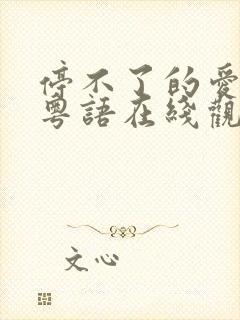 停不了的愛
粵語在綫觀
文心